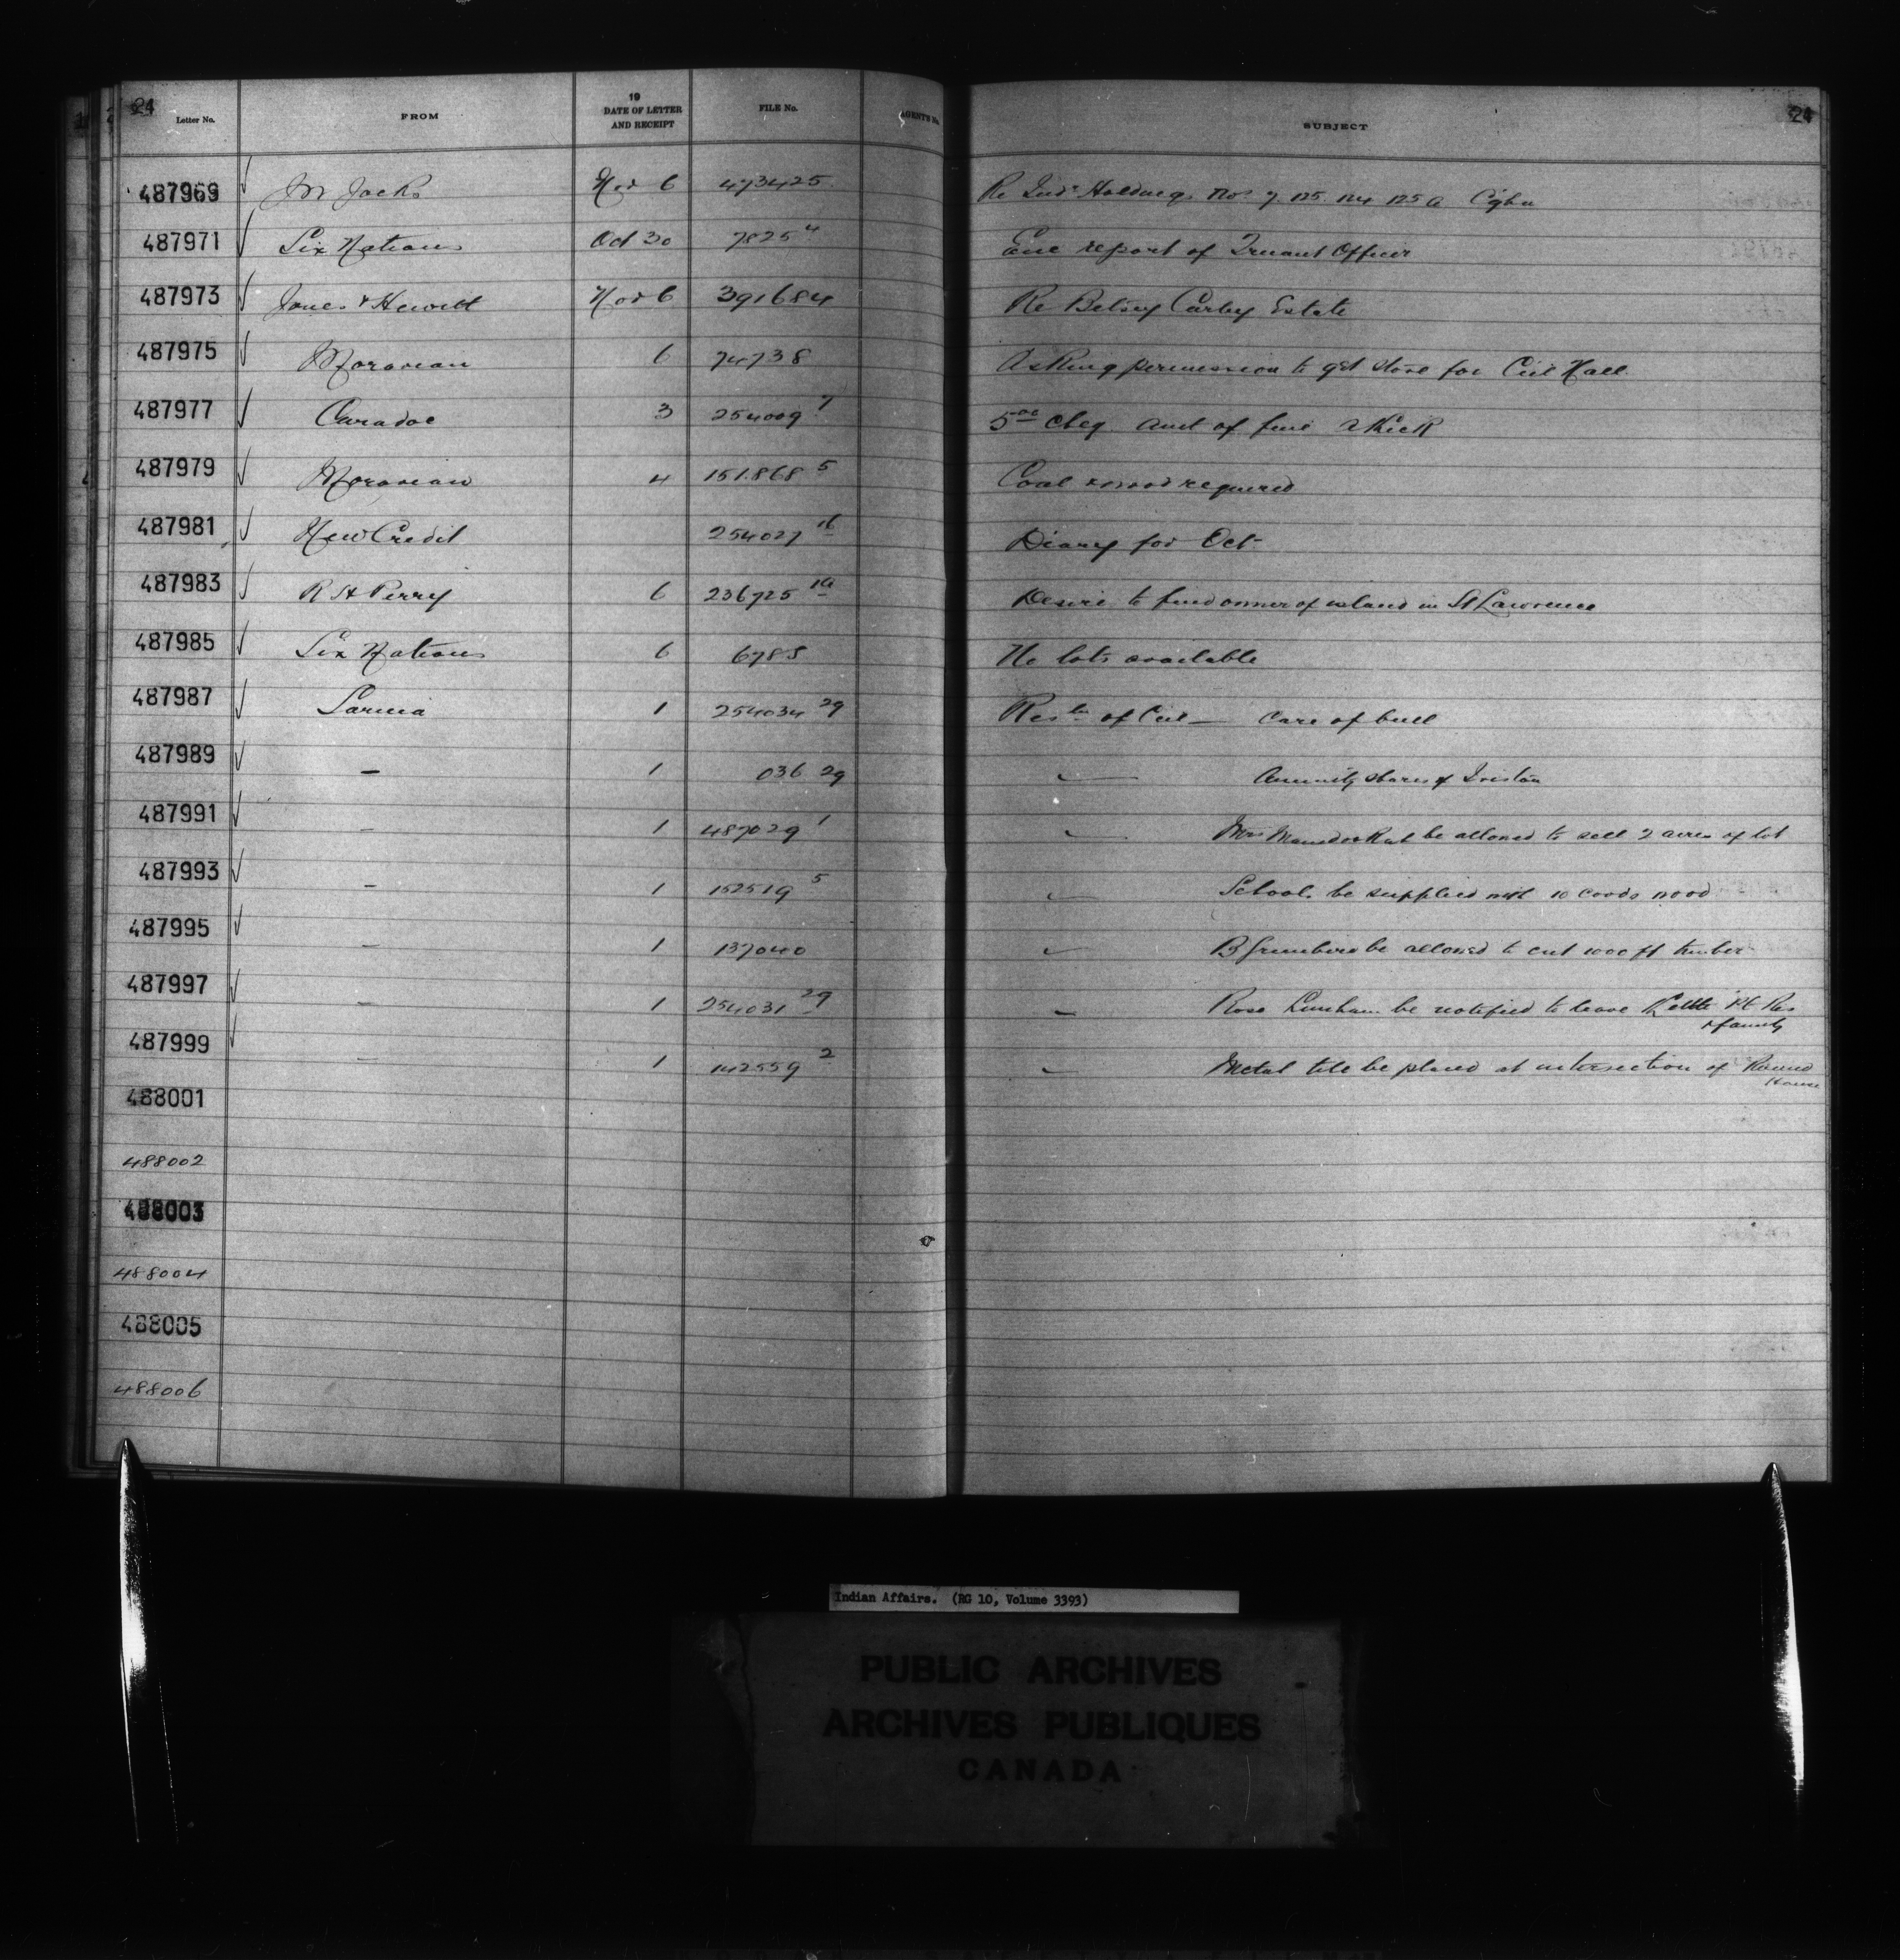 24 24
Letter No. FROM 19 DATE OF LETTER AND RECEIPT FILE No. AGENTS No. SUBJECT
487969 Jm Jacks Nov 6 473425 Re Inds Holdings Nos 7. 125. 124 125 a
487971 Six Nations Oct 30 7825 4 Enc report of Truant Officer
487973 Jones & Hewitt Nov 6 391684 Re Betsey Carley Estate
487975 Moravian 6 74738 Asking permission to get stove for Cil Hall
487977 Caradoc 3 254009 7 5 00 cheq Amt of fine
487979 Moravian 4 151.868 5 Coal & wood required
487981 New Credit 254027 16 Diary for Oct
487983 R H Perry 6 236725 1a Desire to find owner of island in St Lawrence
487985 Six Nations 6 6785 No lots available
487987 Sarnia 1 254034 29 Resln of Cil — Care of bull
487989 — 1 036 29 — Annuity shares of
487991 — 1 487029 1 — Mrs be allowed to sell 2 acres of lot
487993 — 1 152519 5 — School be supplied with 10 cords wood
487995 — 1 137040 — B Greenbird be allowed to cut 1000 ft timber
487997 — 1 254031 29 — Rose be notified to leave Kettle Pt Res
& family
487999 — 1 142559 2 — Metal tile be placed at intersection of Round
House
488001
488002
488003
488004
488005
488006
Indian Affairs. (RG 10, Volume 3393)
PUBLIC ARCHIVES
ARCHIVES PUBLIQUES
CANADA